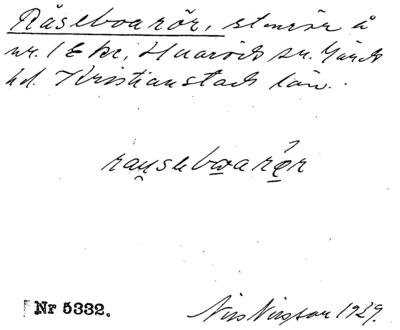 Råseboarör, stenrör å
nr. 1 E kr, Huaröds sn. Gärds
hd. Kristianstads län.
rauseboarör
Nr 5332.
Nils Nilsson 1929.